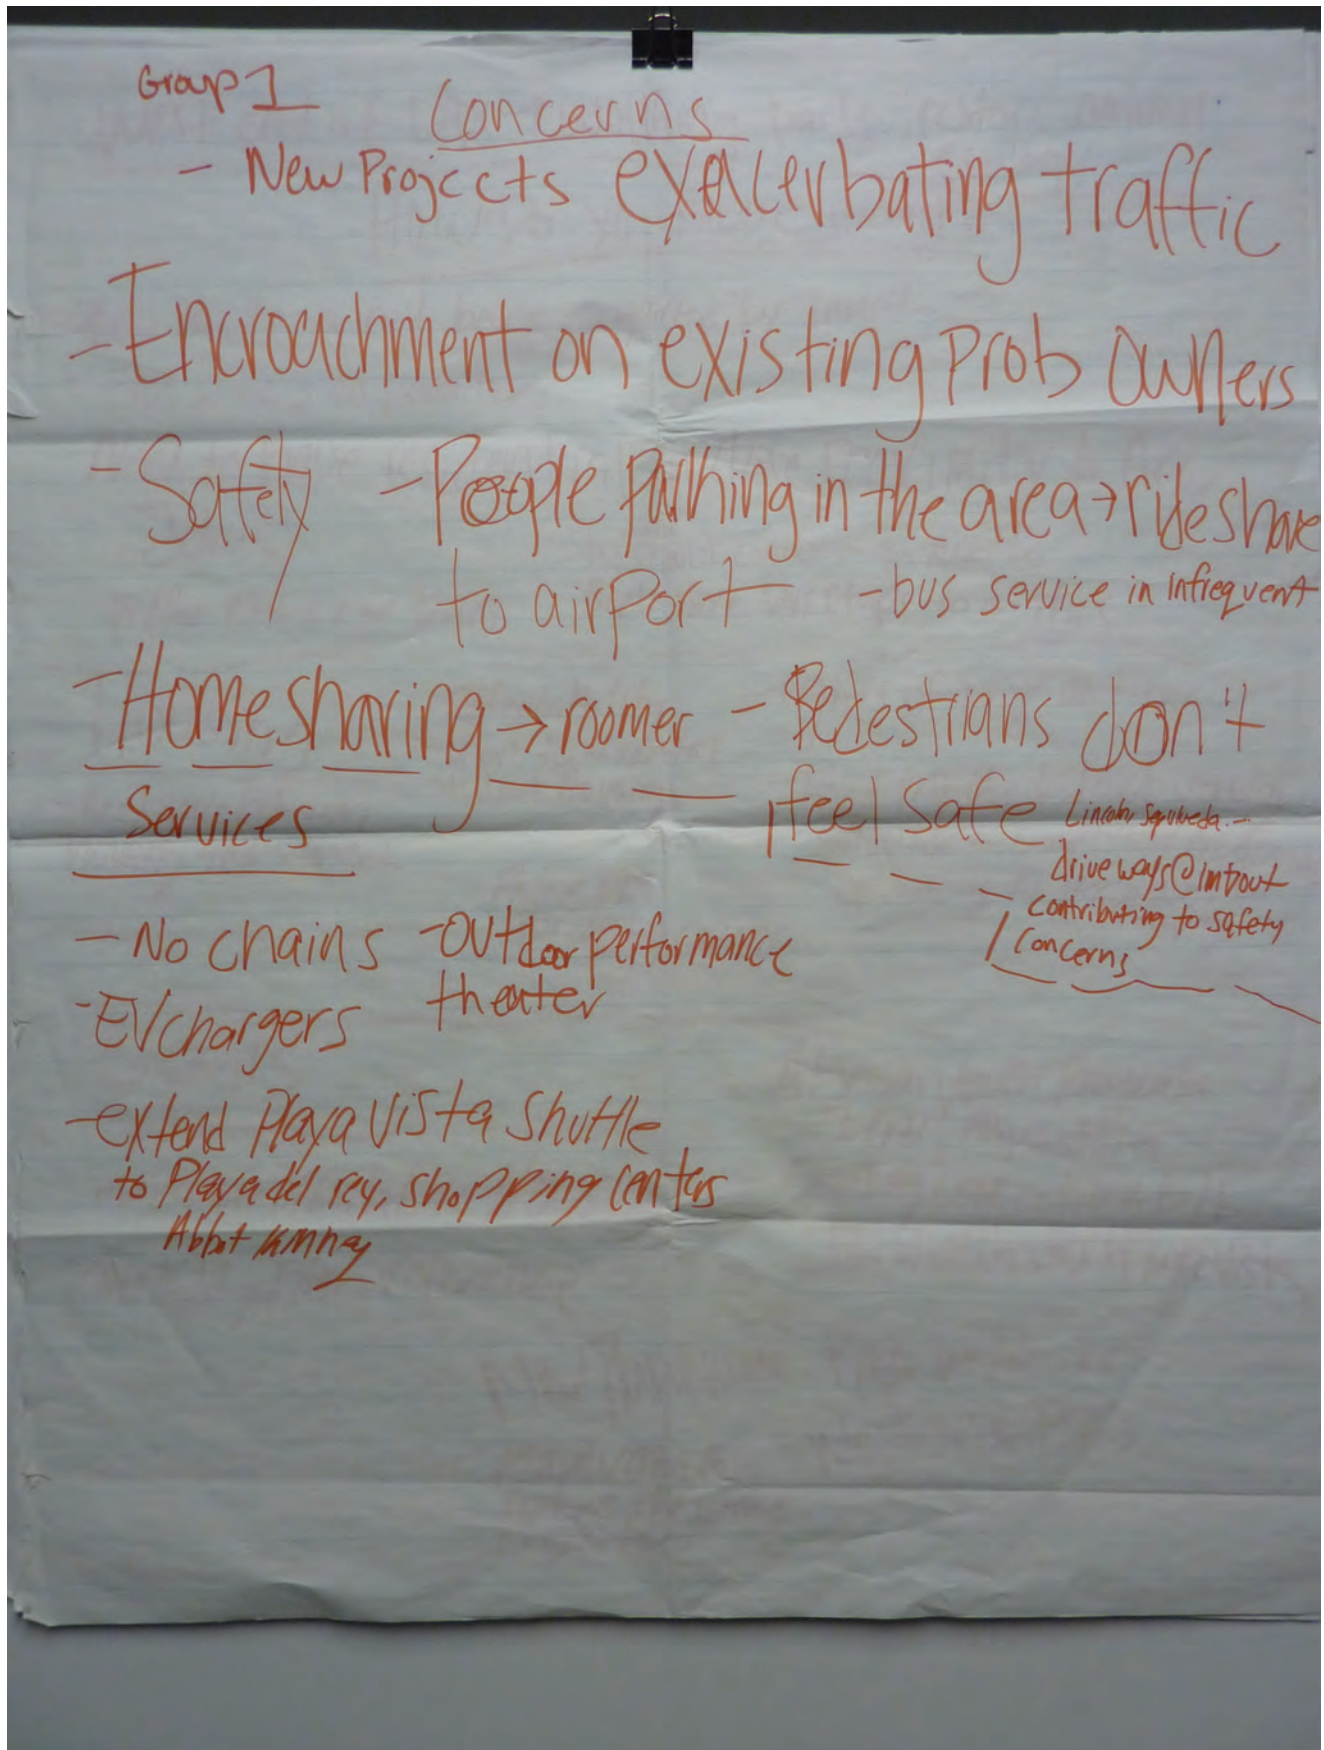 Group 1
Concerns
- New Projects exacerbating traffic
- Encroachment on existing prob owners
- Safety - People parking in the area → rideshare
to airport - bus service in infrequent
- Homesharing → roomer - Pedestrians don't
feel safe
Lincoln, Sepulveda -
driveways @
contributing to safety
concerns
Services
- No chains - Outdoor performance
theater
- EV chargers
- extend Playa Vista Shuttle
to Playa del rey, shopping centers
Abbot Kinney